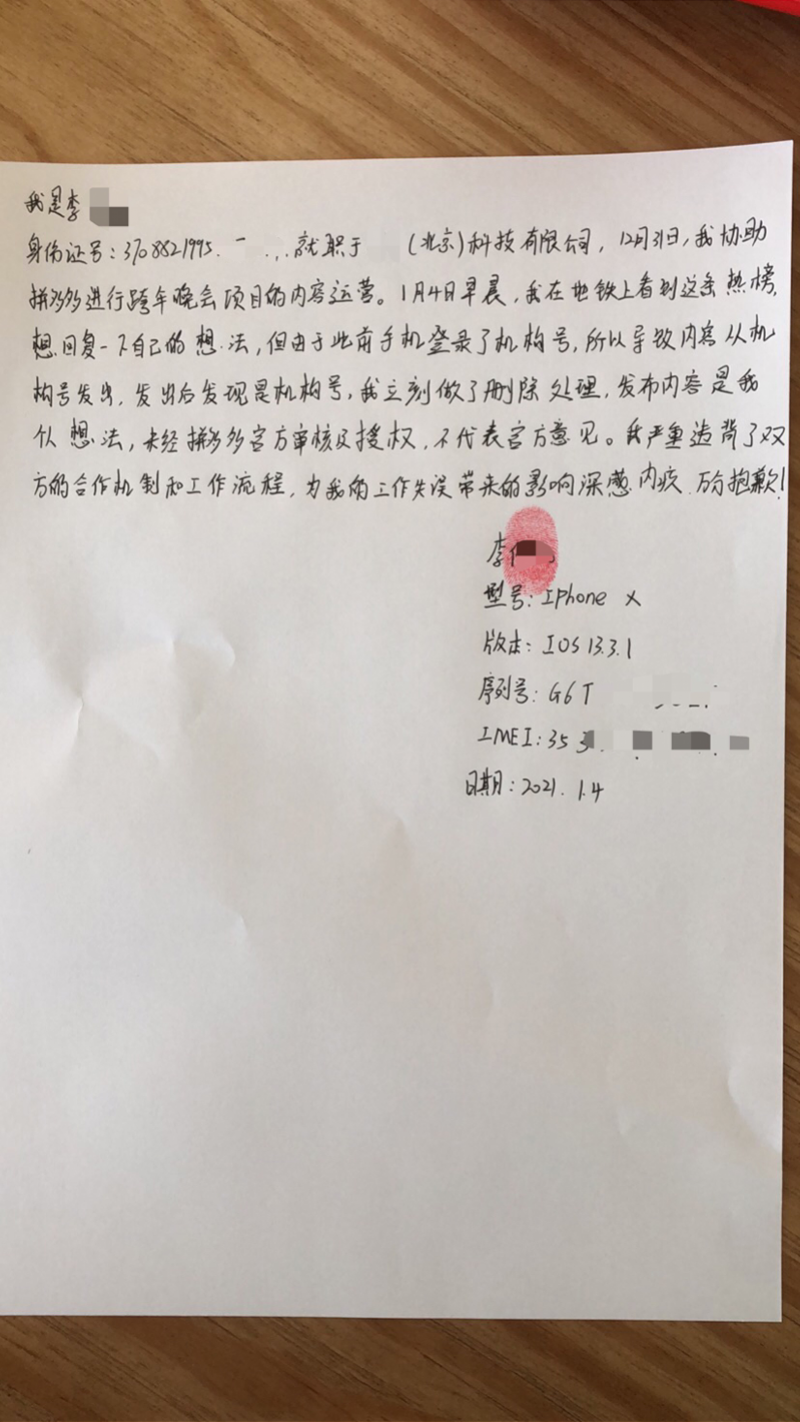 我是李
身份证号：3708821995. 就职于 （北京）科技有限公司，12月31日，我协助
拼多多进行跨年晚会项目的内容运营。1月4日早晨，我在地铁上看到这条热榜，
想回复一下自己的想法，但由于此前手机登录了机构号，所以导致内容从机
构号发出，发出后发现是机构号，我立刻做了删除处理，发布内容是我
个人想法，未经拼多多官方审核及授权，不代表官方意见。我严重违背了双
方的合作机制和工作流程，为我的工作失误带来的影响深感内疚，万分抱歉！
李
型号：Iphone X
版本：IOS 13.3.1
序列号：G6T
IMEI：35
日期：2021.1.4